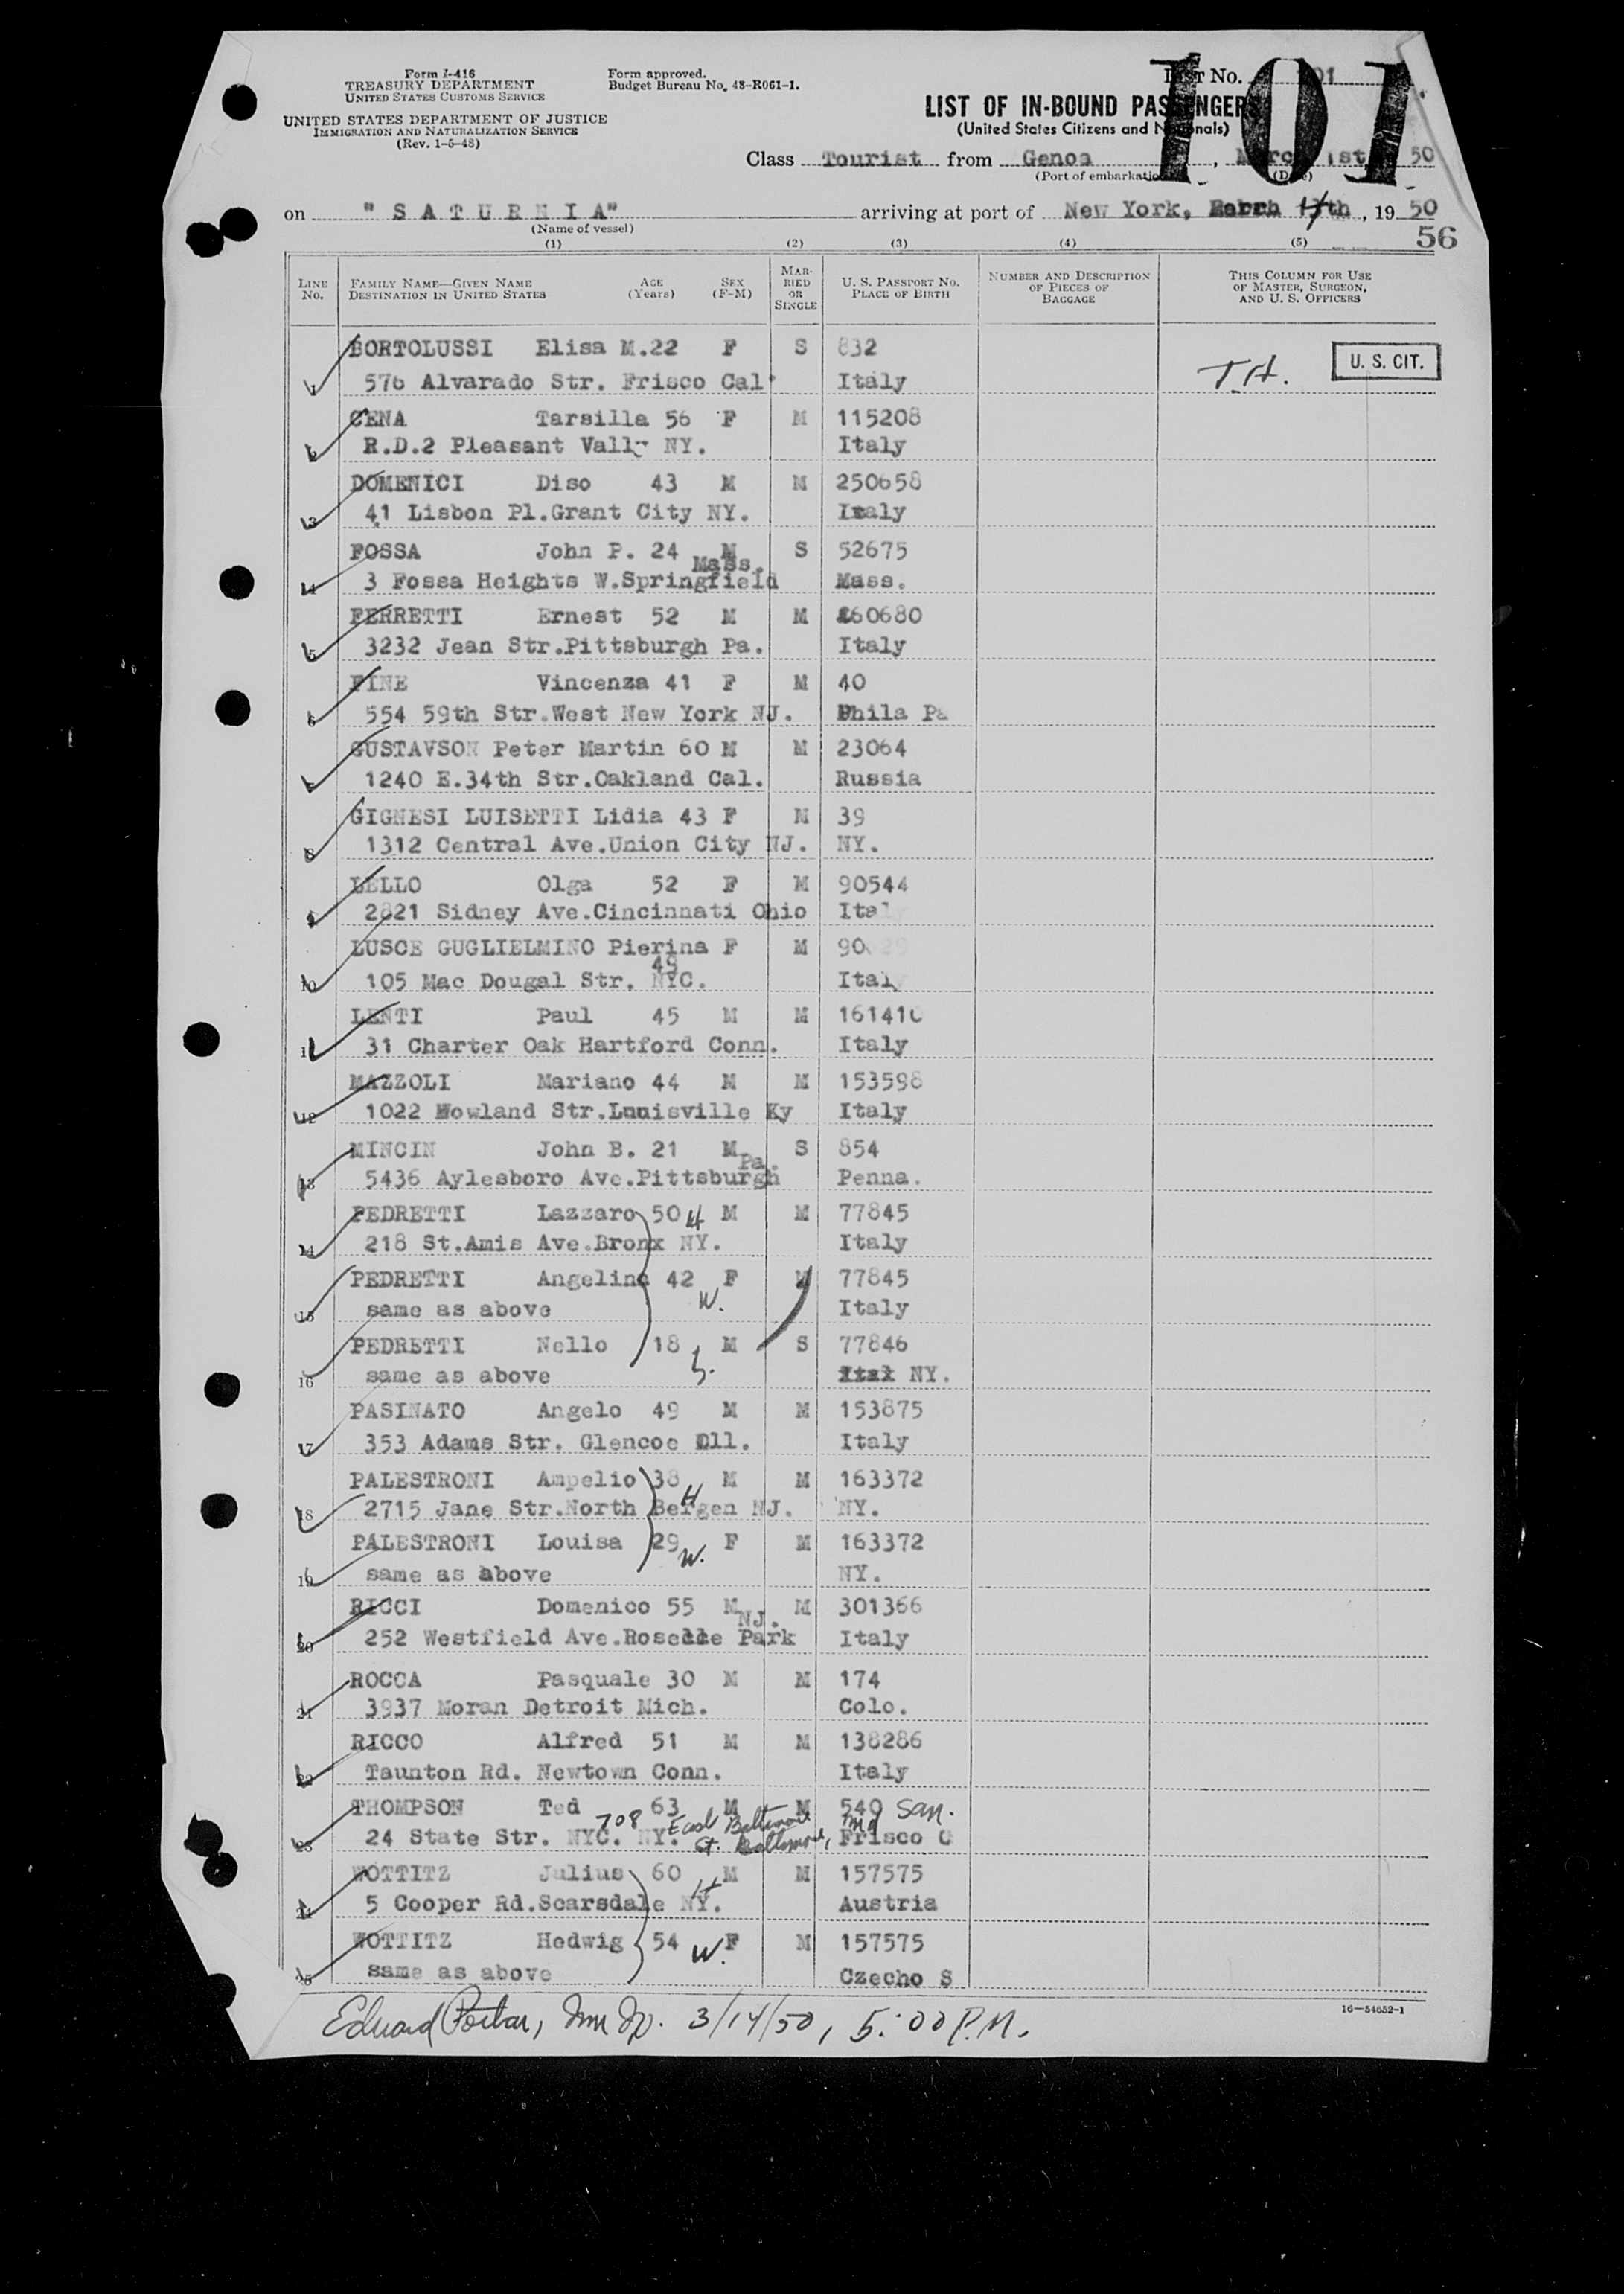 Form I-416
TREASURY DEPARTMENT
UNITED STATES CUSTOMS SERVICE
UNITED STATES DEPARTMENT OF JUSTICE
IMMIGRATION AND NATURALIZATION SERVICE
(Rev. 1-5-48)
Form approved.
Budget Bureau No. 48-R061-1.
101
List No. 101
LIST OF IN-BOUND PASSENGERS
(United States Citizens and Nationals)
Class Tourist from Genoa, March 1st, 50
(Port of embarkation) (Date)
on "SATURNIA" arriving at port of New York, March 14th, 19 50
(Name of vessel)
56
(1) (2) (3) (4) (5)
LINE No. FAMILY NAME—GIVEN NAME DESTINATION IN UNITED STATES AGE (Years) SEX (F-M) MARRIED OR SINGLE U. S. PASSPORT NO. PLACE OF BIRTH NUMBER AND DESCRIPTION OF PIECES OF BAGGAGE THIS COLUMN FOR USE OF MASTER, SURGEON, AND U. S. OFFICERS
BORTOLUSSI Elisa M.22 F S 832
576 Alvarado Str. Frisco Cal Italy T.H. U. S. CIT.
CENA Tarsilla 56 F M 115208
2 R.D.2 Pleasant Vally NY. Italy
DOMENICI Diso 43 M M 250658
3 41 Lisbon Pl.Grant City NY. Italy
FOSSA John P. 24 M S 52675
Mass.
4 3 Fossa Heights W.Springfield Mass.
FERRETTI Ernest 52 M M 260680
5 3232 Jean Str.Pittsburgh Pa. Italy
FINE Vincenza 41 F M 40
6 554 59th Str.West New York NJ. Phila Pa
GUSTAVSON Peter Martin 60 M M 23064
7 1240 E.34th Str.Oakland Cal. Russia
GIGNESI LUISETTI Lidia 43 F M 39
8 1312 Central Ave.Union City NJ. NY.
LELLO Olga 52 F M 90544
9 2821 Sidney Ave.Cincinnati Ohio Ital
LUSCE GUGLIELMINO Pierina F M
49
10 105 Mac Dougal Str. NYC. Italy
LENTI Paul 45 M M 161410
11 31 Charter Oak Hartford Conn. Italy
MAZZOLI Mariano 44 M M 153598
12 1022 Howland Str.Louisville Ky Italy
MINCIN John B. 21 M S 854
Pa.
13 5436 Aylesboro Ave.Pittsburgh Penna.
PEDRETTI Lazzaro 50 H M M 77845
14 218 St.Amis Ave.Bronx NY. Italy
PEDRETTI Angelina 42 F M 77845
15 same as above W. Italy
PEDRETTI Nello 18 M S 77846
16 same as above S. Ital NY.
PASINATO Angelo 49 M M 153875
17 353 Adams Str. Glencoe Ill. Italy
PALESTRONI Ampelio 38 M M 163372
H
18 2715 Jane Str.North Bergen NJ. NY.
PALESTRONI Louisa 29 W. F M 163372
19 same as above NY.
RICCI Domenico 55 M M 301366
NJ.
20 252 Westfield Ave.Roselle Park Italy
ROCCA Pasquale 30 M M 174
21 3937 Moran Detroit Mich. Colo.
RICCO Alfred 51 M M 138286
22 Taunton Rd. Newtown Conn. Italy
THOMPSON Ted 63 M M 540 San.
708 East Baltimore
St. Baltimore, Md
23 24 State Str. NYC. NY. Frisco C
WOTTITZ Julius 60 M M 157575
H
24 5 Cooper Rd.Scarsdale NY. Austria
WOTTITZ Hedwig 54 W. F M 157575
25 same as above Czecho S
16—54652-1
Edward Porter, Imm Ip. 3/14/50, 5:00 P.M.